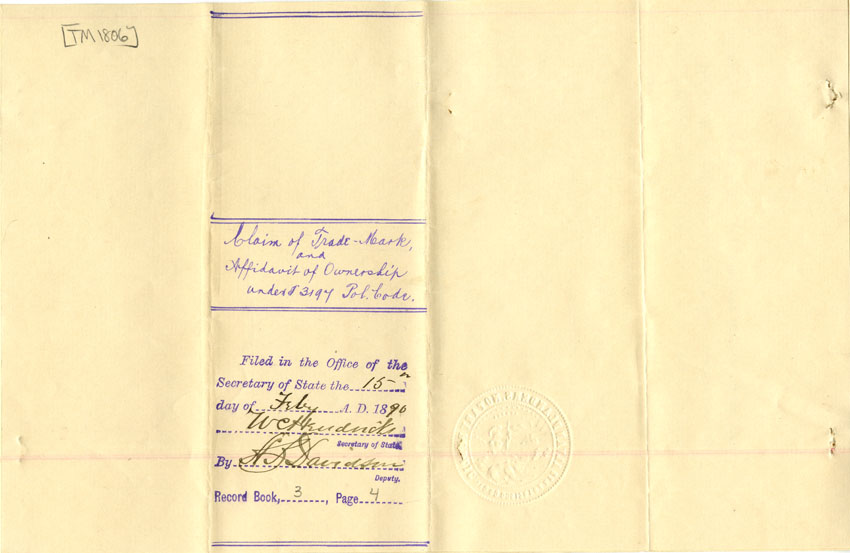 [TM 1806]
Claim of Trade-Mark,
and
Affidavit of Ownership
under § 3197 Pol. Code.
Filed in the Office of the
Secretary of State the 15
day of Feby A. D. 1890
W C Hendricks
Secretary of State
By Davidson
Deputy.
Record Book, 3, Page 4